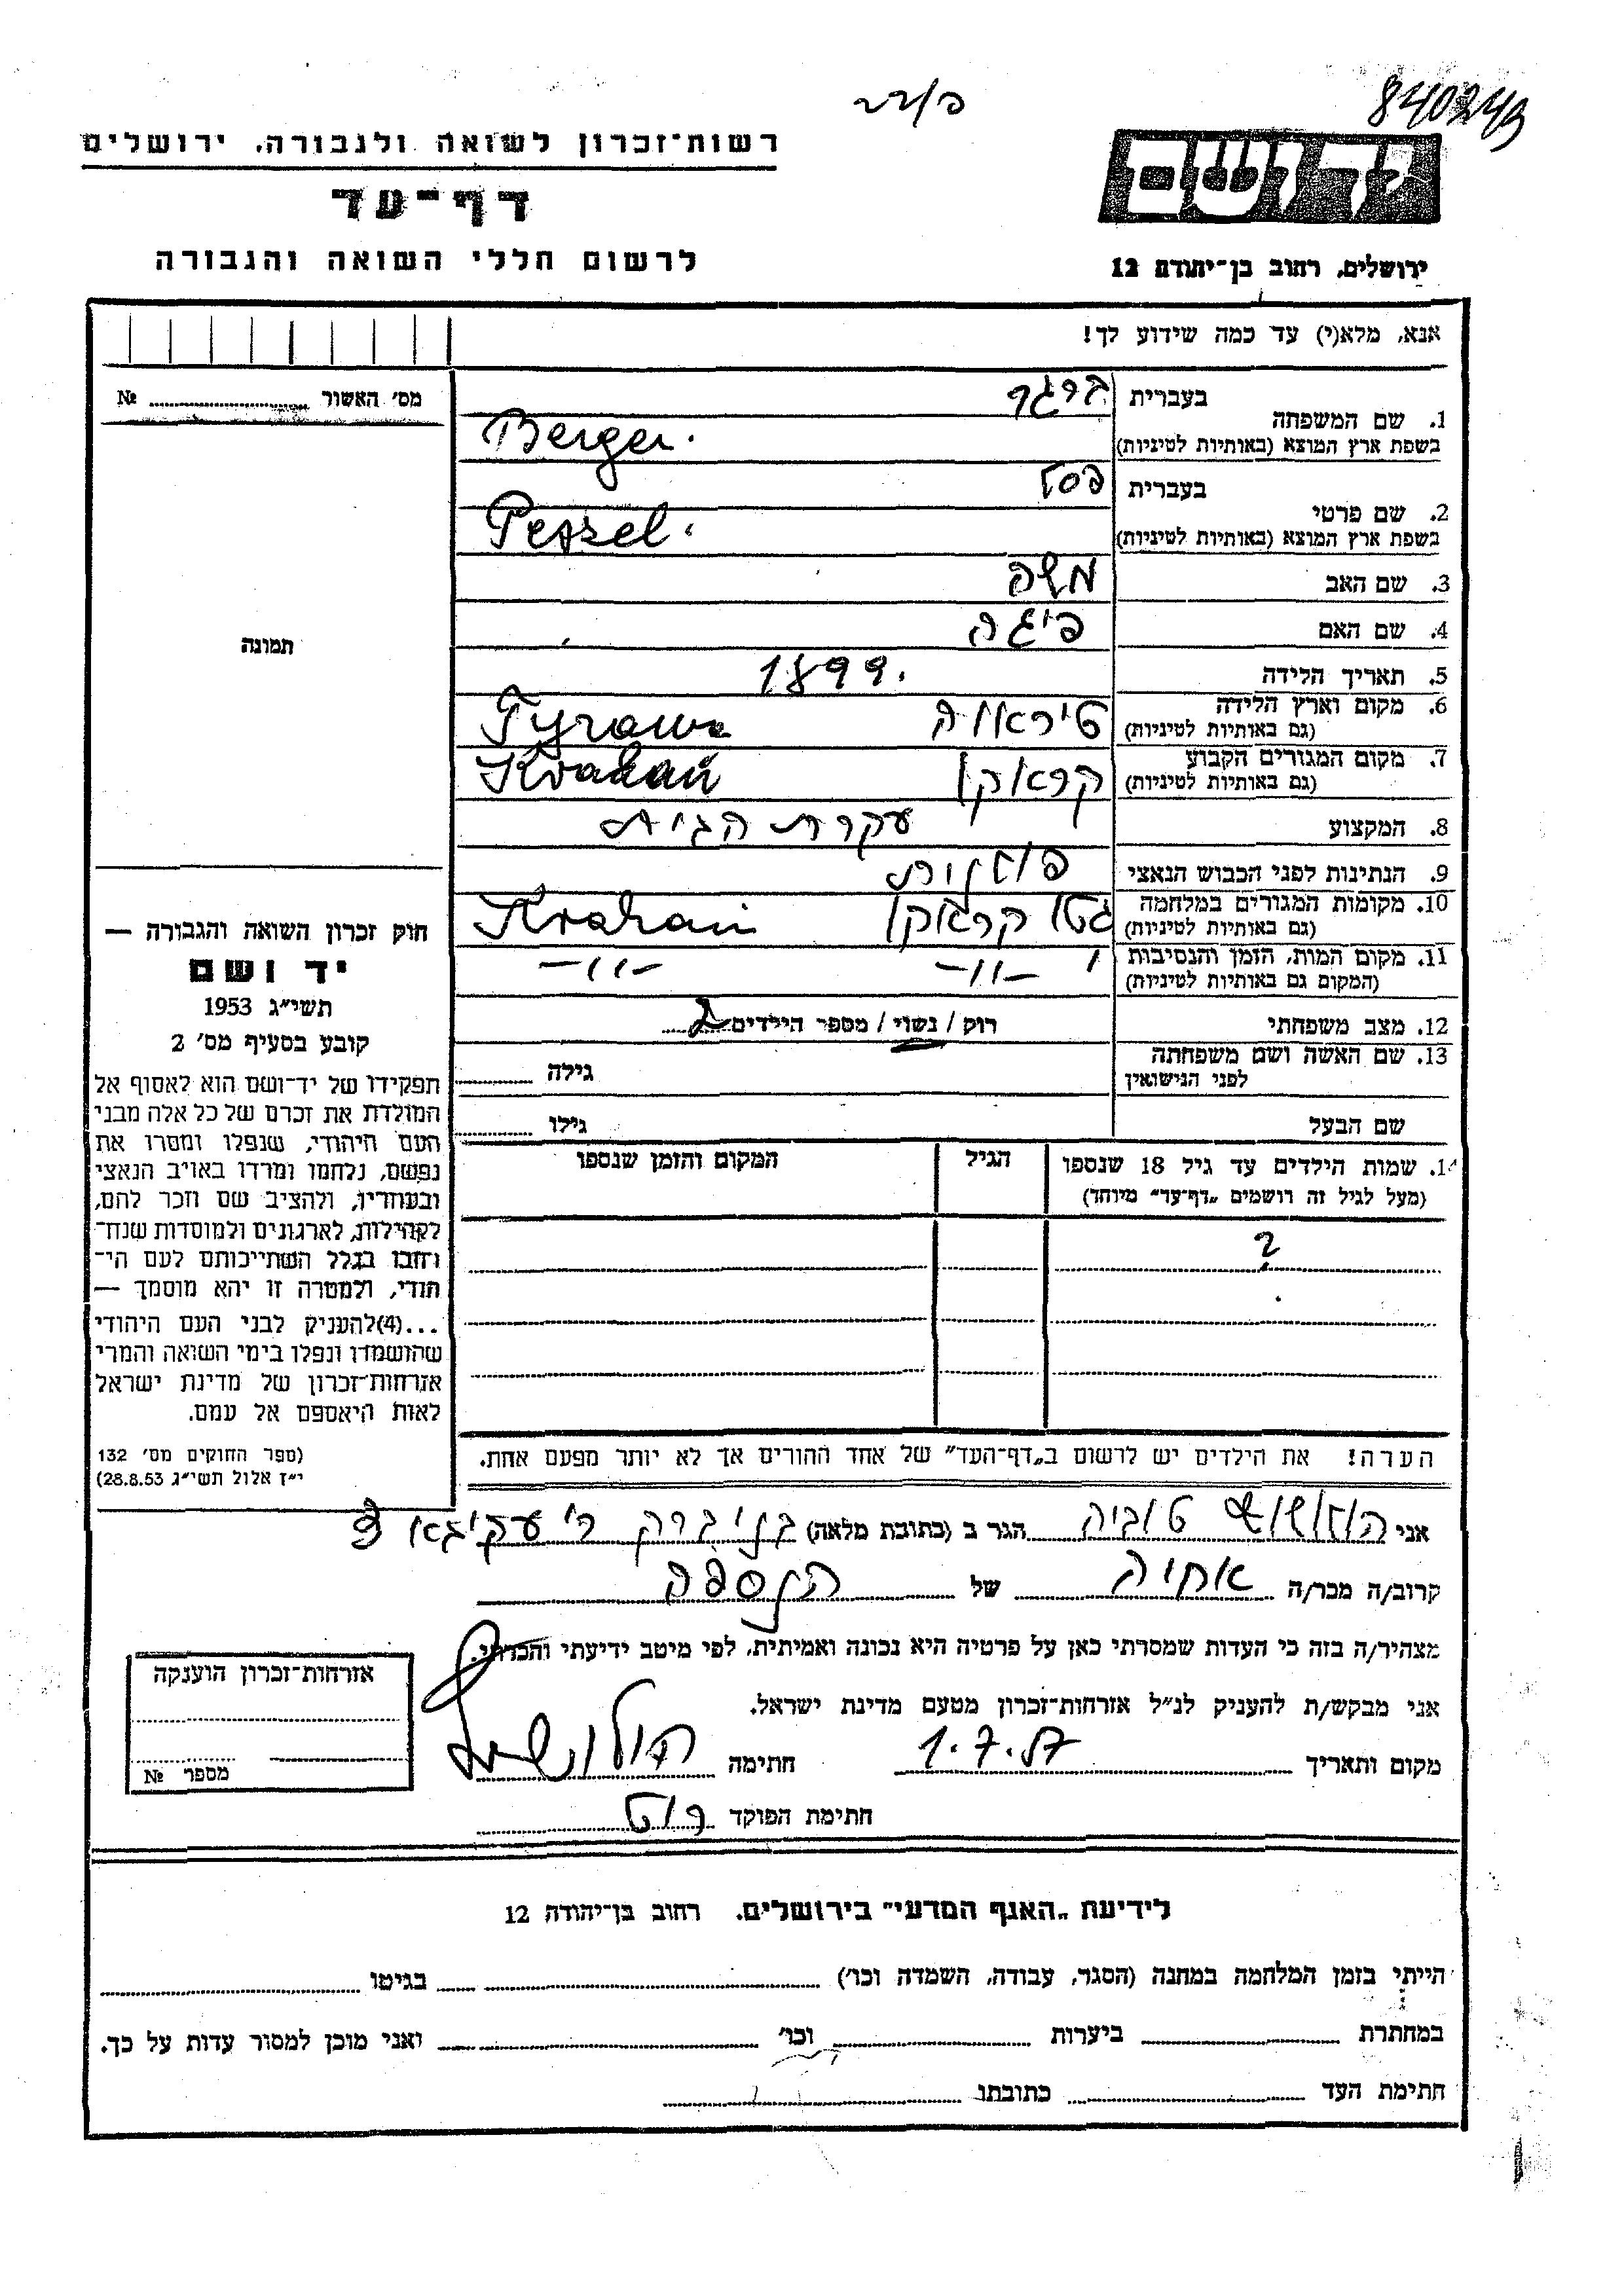 840249
רשות־זכרון לשואה ולגבורה. ירושלים
ידושם
דף־עד
לרשום חללי השואה והגבורה
ירושלים, רחוב בן־יהודה 12
אנא, מלא(י) עד כמה שידוע לך!
מס׳ האשור № 
1. שם המשפחה בעברית ברגר
בשפת ארץ המוצא (באותיות לטיניות) Berger.
2. שם פרטי בעברית פסל
בשפת ארץ המוצא (באותיות לטיניות) Peszel.
3. שם האב משה
4. שם האם פיגה
5. תאריך הלידה 1899.
6. מקום וארץ הלידה (גם באותיות לטיניות) טיראווה Tyrawa
7. מקום המגורים הקבוע (גם באותיות לטיניות) קראקו Krakau
8. המקצוע עקרת הבית
9. הנתינות לפני הכבוש הנאצי פולנית
10. מקומות המגורים במלחמה (גם באותיות לטיניות) גטו קראקו Krakau
11. מקום המות, הזמן והנסיבות (המקום גם באותיות לטיניות) –״– –״–
12. מצב משפחתי רוק / נשוי / מספר הילדים 2
13. שם האשה ושם משפחתה לפני הנישואין גילה
שם הבעל גילו
14. שמות הילדים עד גיל 18 שנספו הגיל המקום והזמן שנספו
(מעל לגיל זה רושמים „דף־עד״ מיוחד)
?
הערה! את הילדים יש לרשום ב„דף־העד״ של אחד ההורים אך לא יותר מפעם אחת.
תמונה
חוק זכרון השואה והגבורה —
יד ושם
תשי״ג 1953
קובע בסעיף מס׳ 2
תפקידו של יד־ושם הוא לאסוף אל
המולדת את זכרם של כל אלה מבני
העם היהודי, שנפלו ומסרו את
נפשם, נלחמו ומרדו באויב הנאצי
ובעוזריו, ולהציב שם וזכר להם,
לקהילות, לארגונים ולמוסדות שנח־
רבו בגלל השתייכותם לעם הי־
הודי, ולמטרה זו יהא מוסמך —
...(4)להעניק לבני העם היהודי
שהושמדו ונפלו בימי השואה והמרי
אזרחות־זכרון של מדינת ישראל
לאות היאספם אל עמם.
(ספר החוקים מס׳ 132
י״ז אלול תשי״ג 28.8.53)
אני טוביה הגר ב (כתובת מלאה) בני ברק ר׳ עקיבא
קרוב/ה מכר/ה אחיה של הנספה
מצהיר/ה בזה כי העדות שמסרתי כאן על פרטיה היא נכונה ואמיתית, לפי מיטב ידיעתי והכרתי.
אני מבקש/ת להעניק לנ״ל אזרחות־זכרון מטעם מדינת ישראל.
מקום ותאריך 1.7.57 חתימה
חתימת הפוקד
אזרחות־זכרון הוענקה
מספר №
לידיעת „האגף המדעי״ בירושלים. רחוב בן־יהודה 12
הייתי בזמן המלחמה במחנה (הסגר, עבודה, השמדה וכו׳) בגיטו
במחתרת ביערות וכו׳ ואני מוכן למסור עדות על כך.
חתימת העד כתובתו